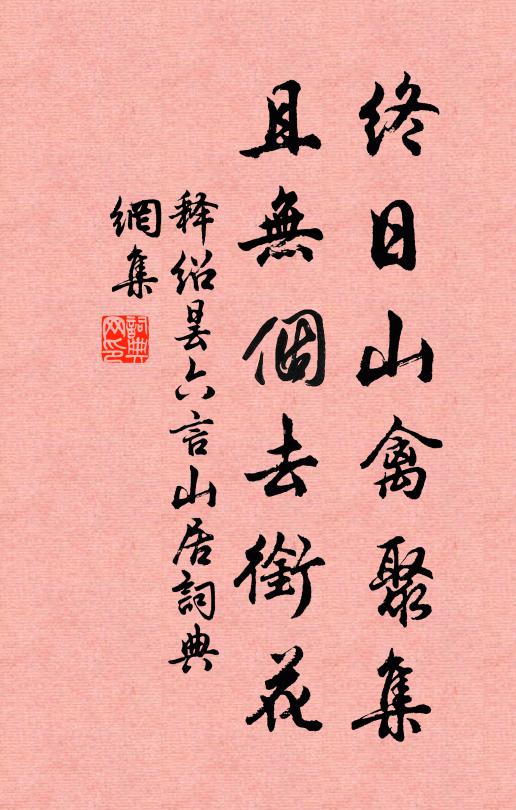 終日山禽聚集
且無個去銜花
释紹昙六言山居詞典
網集
詞典網印